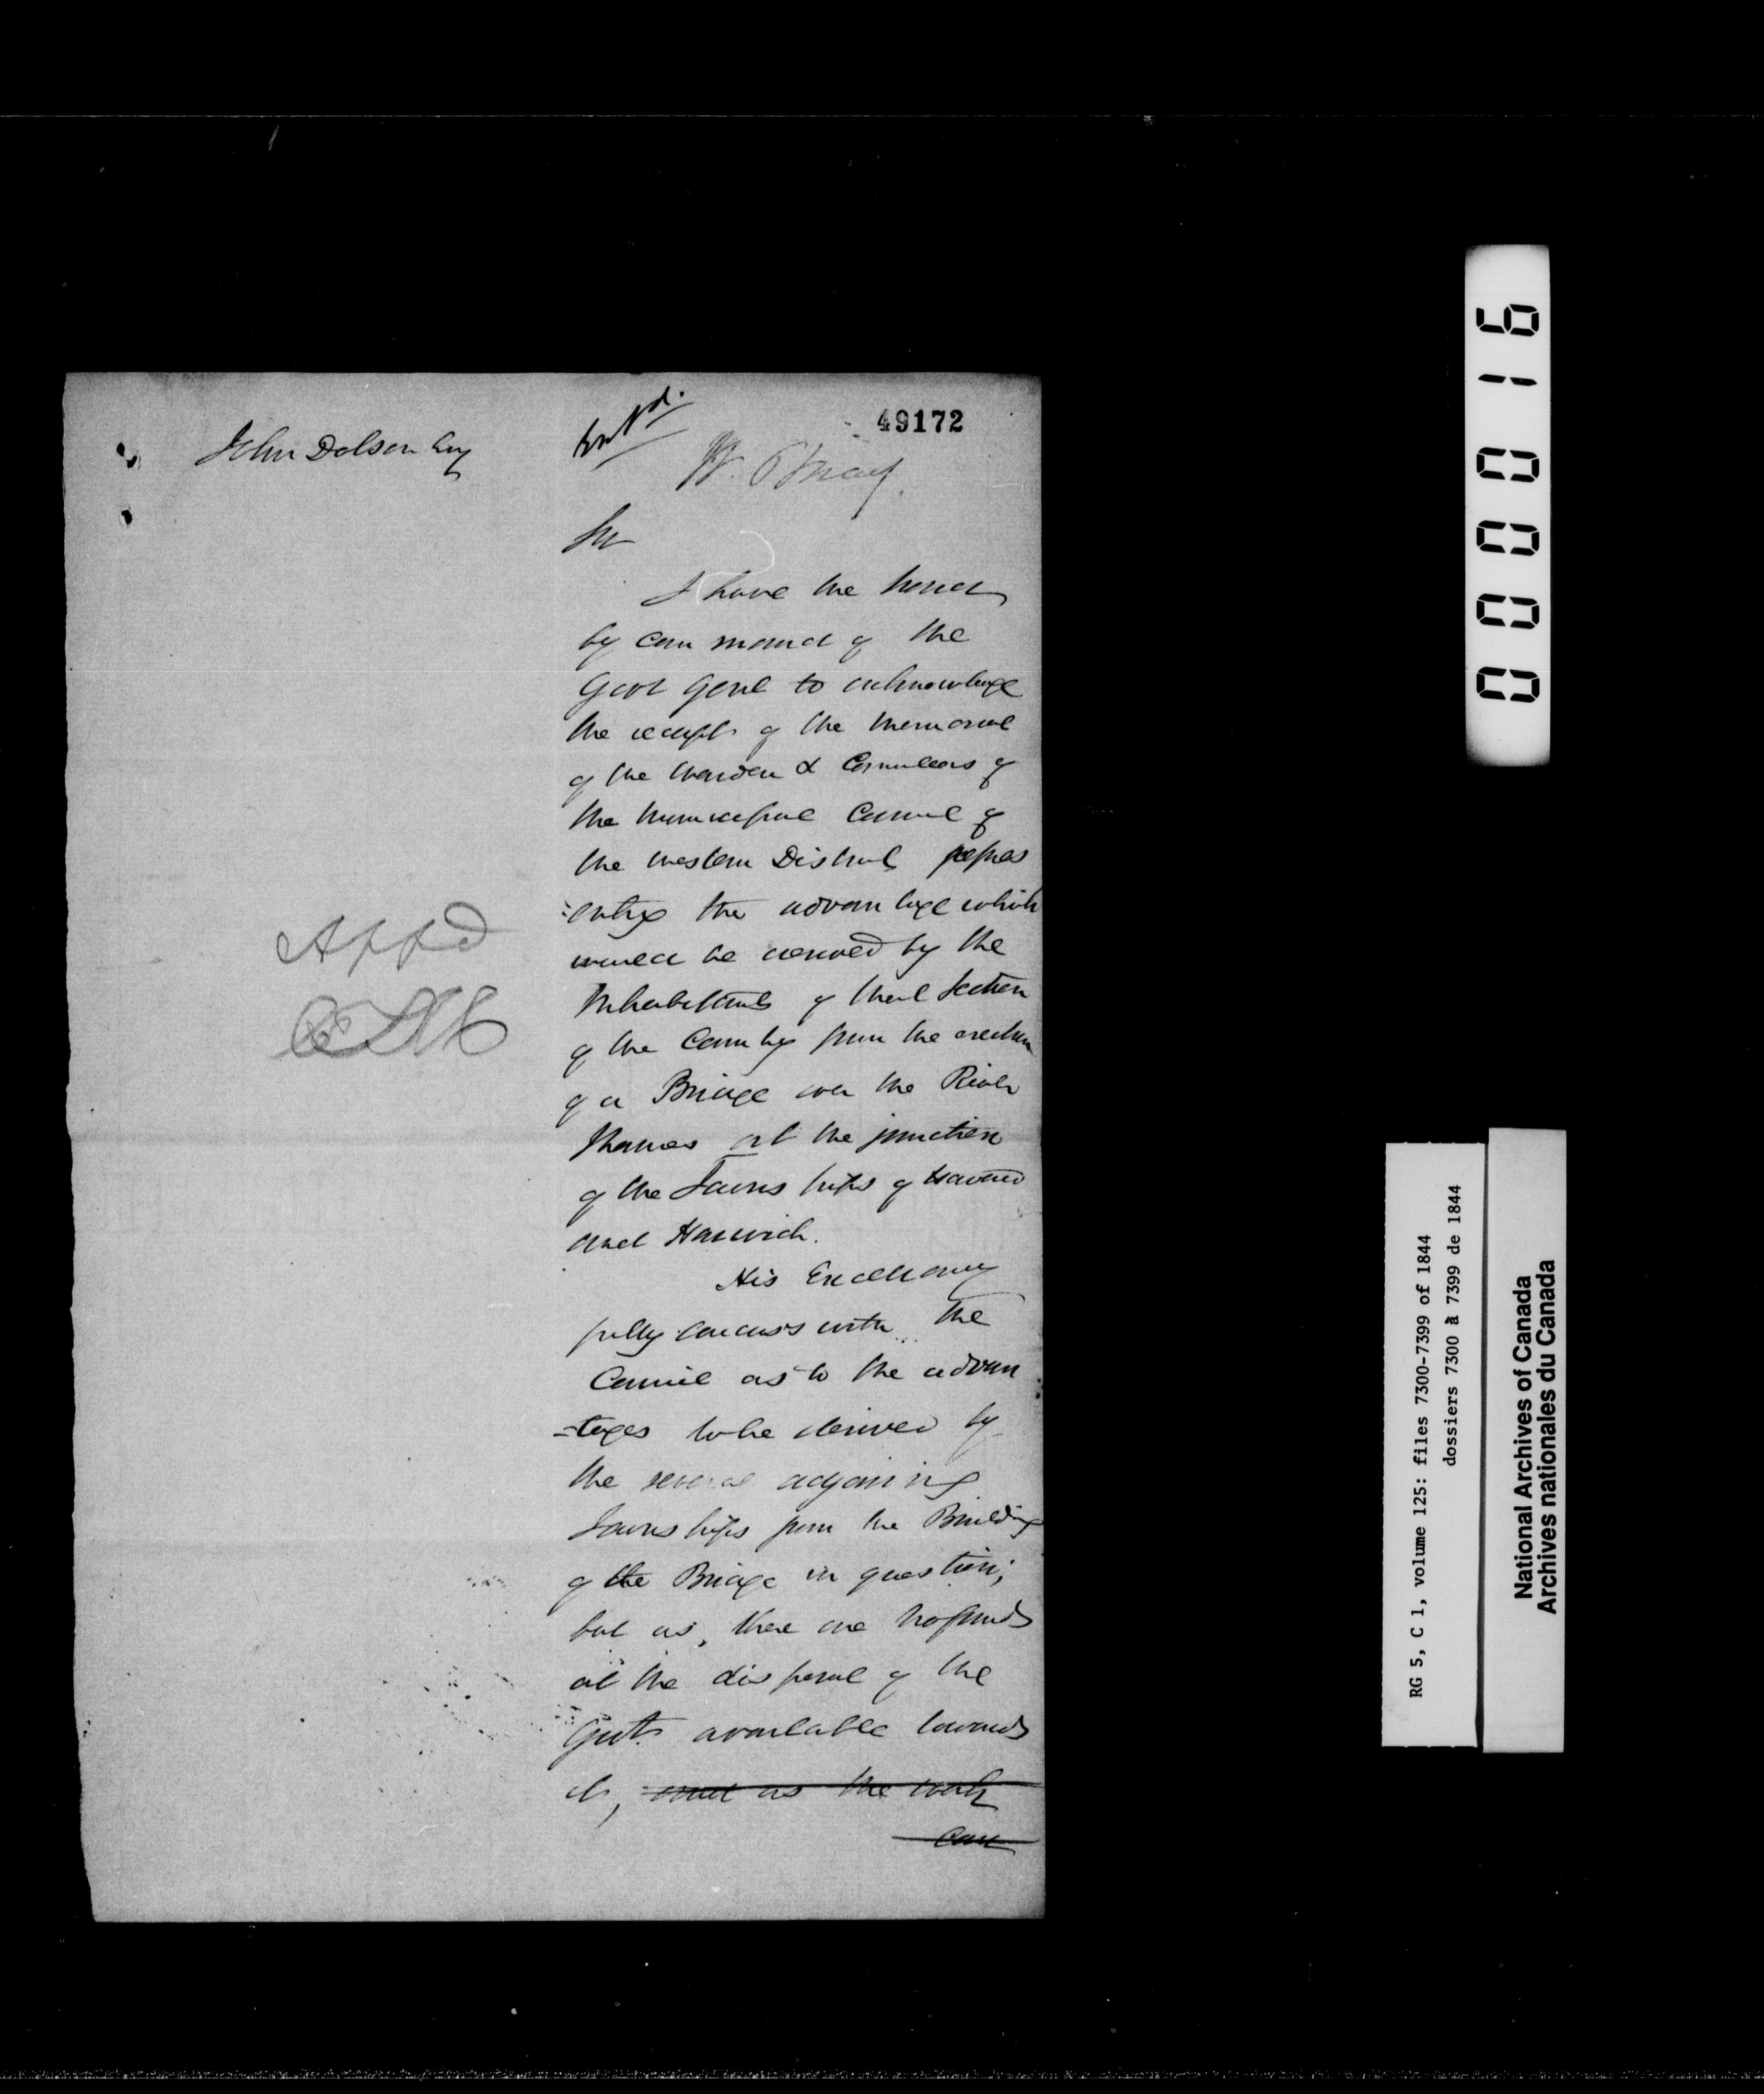 49172
John Dolsen Esq
Sir
I have the honor
by command of the
Govr Genl to acknowledge
the receipt of the Memorial
of the Warden & Councillors of
the Municipal Council of
the Western District repres
:enting the advantage which
would be derived by the
Inhabitants of that Section
of the Country from the erection
of a Bridge over the River
Thames at the junction
of the Townships of Harwich
and Harwich.
His Excellency
fully concurs with the
Council as to the advan
-tages to be derived by
the several adjoining
Townships from the Building
of the Bridge in question;
but as, there are no funds
at the disposal of the
Govt. available towards
it, and as the work
can
Appd
000016
RG 5, C 1, volume 125: files 7300-7399 of 1844
dossiers 7300 à 7399 de 1844
National Archives of Canada
Archives nationales du Canada